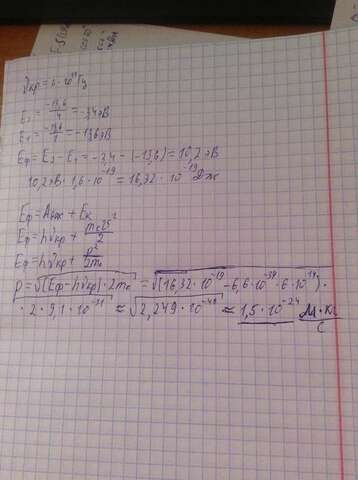 νкр = 6·10¹⁴ Гц
E₂ = -13,6/4 = -3,4 эВ
E₁ = -13,6/1 = -13,6 эВ
Eф = E₂ - E₁ = -3,4 - (-13,6) = 10,2 эВ
10,2 эВ · 1,6·10⁻¹⁹ = 16,32·10⁻¹⁹ Дж
Eф = Aвых + Eк
Eф = hνкр + mₑv²/2
Eф = hνкр + p²/2mₑ
p = √(Eф - hνкр)·2mₑ = √(16,32·10⁻¹⁹ - 6,6·10⁻³⁴·6·10¹⁴)·
·2·9,1·10⁻³¹ ≈ √2,249·10⁻⁴⁸ ≈ 1,5·10⁻²⁴ м·кг/с